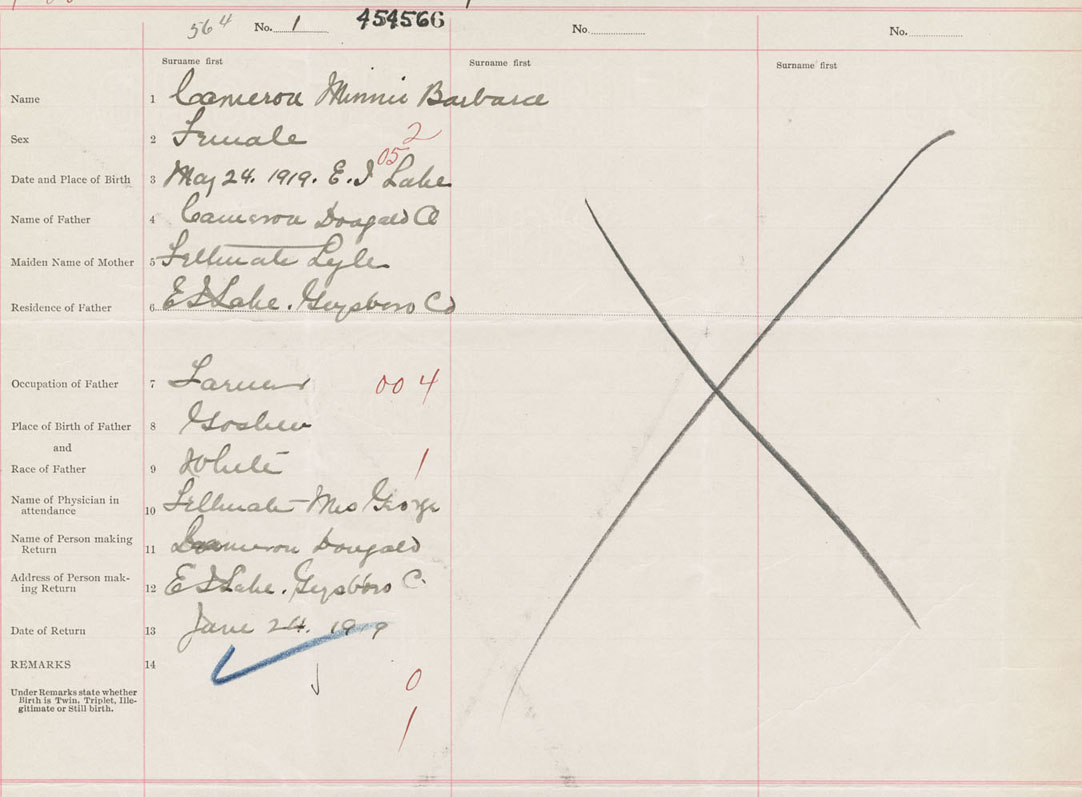 564 No. 1 454566 No. No.
Surname first Surname first Surname first
Name 1 Cameron Minnie Barbara
Sex 2 Female 2
05
Date and Place of Birth 3 May 24. 1919. E. I Lake
Name of Father 4 Cameron Dougald A
Maiden Name of Mother 5 Fellmate Lyle
Residence of Father 6 E I Lake. Guysboro Co
Occupation of Father 7 Farmer 00 4
Place of Birth of Father 8 Goshen
and
Race of Father 9 White 1
Name of Physician in
attendance 10 Fellmate - Mrs George
Name of Person making
Return 11 Cameron Dougald
Address of Person mak-
ing Return 12 E I Lake. Guysboro C.
Date of Return 13 June 24. 1919
REMARKS 14
0
Under Remarks state whether
Birth is Twin, Triplet, Ille-
gitimate or Still birth.
1